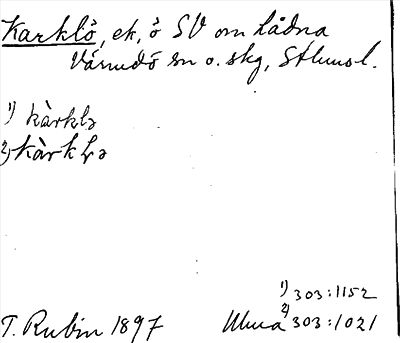 Karklö, ek, ö SV om Lådna
Värmdö sn o. skg, Sthmsl.
1) kàrklə
2) kàrkḷə
1) 303:1152
T. Rubin 1897 2) 303:1021